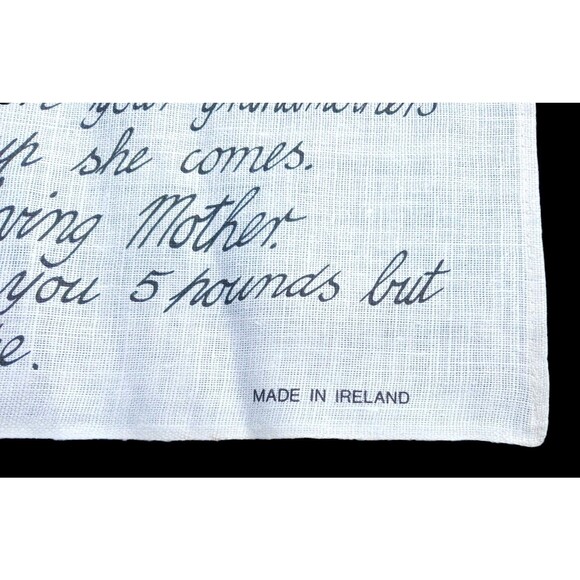 your grandmothers
up she comes.
ving Mother.
you 5 pounds but
e.
MADE IN IRELAND